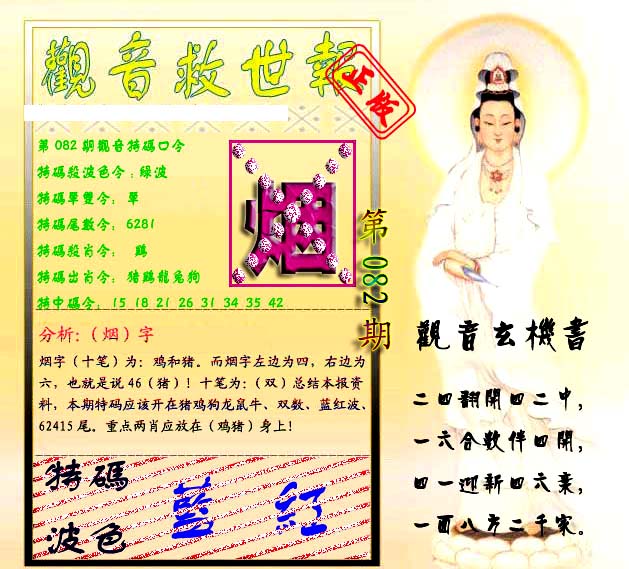 觀音救世報
正版
第 082 期觀音特碼口令
特碼殺波色令：綠波
特碼單雙令：單
特碼尾數令：6281
特碼殺肖令：鷄
特碼出肖令：猪鷄龍兔狗
特中碼令：15 18 21 26 31 34 35 42
烟
第 082 期
分析：（烟）字
烟字（十笔）为：鸡和猪。而烟字左边为四，右边为
六，也就是说 46（猪）！十笔为：（双）总结本报资
料，本期特码应该开在猪鸡狗龙鼠牛、双数、蓝红波、
62415 尾。重点两肖应放在（鸡猪）身上！
特碼
波色
藍 紅
觀音玄機書
二四翻開四二中，
一六合数伴四開，
四一迎新四六来，
一面八方二千家。